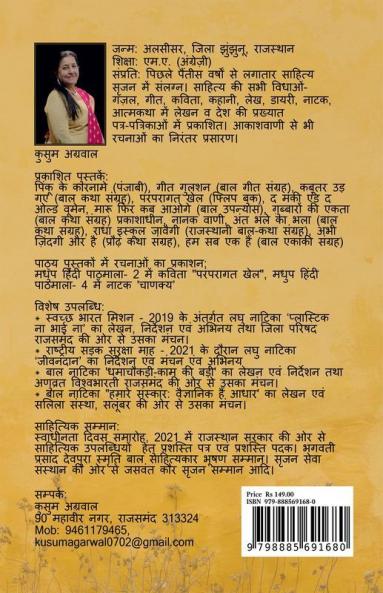 जन्म: अलसीसर, जिला झुंझुनू, राजस्थान
शिक्षा: एम.ए. (अंग्रेज़ी)
संप्रति: पिछले पैंतीस वर्षों से लगातार साहित्य
सृजन में संलग्न। साहित्य की सभी विधाओं-
गज़ल, गीत, कविता, कहानी, लेख, डायरी, नाटक,
आत्मकथा में लेखन व देश की प्रख्यात
पत्र-पत्रिकाओं में प्रकाशित। आकाशवाणी से भी
रचनाओं का निरंतर प्रसारण।
कुसुम अग्रवाल
प्रकाशित पुस्तकें:
पिंकू के कारनामे (पंजाबी), गीत गुलशन (बाल गीत संग्रह), कबूतर उड़
गए (बाल कथा संग्रह), परंपरागत खेल (फ्लिप बुक), द मंकी एंड द
ओल्ड वुमेन, मारू फिर कब आओगे (बाल उपन्यास), गुब्बारों की एकता
(बाल कथा संग्रह) प्रकाशाधीन, नानक वाणी, अंत भले का भला (बाल
कथा संग्रह), राधा इस्कूल जावैगी (राजस्थानी बाल-कथा संग्रह), अभी
ज़िंदगी और है (प्रौढ़ कथा संग्रह), हम सब एक है (बाल एकांकी संग्रह)
पाठ्य पुस्तकों में रचनाओं का प्रकाशन;
मधुप हिंदी पाठ्माला- 2 में कविता "परंपरागत खेल", मधुप हिंदी
पाठ्माला- 4 में नाटक 'चाणक्य'
विशेष उपलब्धि:
• स्वच्छ भारत मिशन - 2019 के अंतर्गत लघु नाटिका 'प्लास्टिक
ना भाई ना' का लेखन, निर्देशन एवं अभिनय तथा जिला परिषद
राजसमंद की ओर से उसका मंचन।
• राष्ट्रीय सड़क सुरक्षा माह - 2021 के दौरान लघु नाटिका
'जीवनदान' का निर्देशन एवं मंचन एवं अभिनय
• बाल नाटिका 'धमाचौकड़ी-काम की बड़ी' का लेखन एवं निर्देशन तथा
अणुव्रत विश्वभारती राजसमंद की ओर से उसका मंचन।
• बाल नाटिका "हमारे सुंस्कार: वैज्ञानिक हैं आधार' का लेखन एवं
सलिला संस्था, सलूंबर की ओर से उसका मंचन।
साहित्यिक सम्मान:
स्वाधीनता दिवस समारोह, 2021 में राजस्थान सरकार की ओर से
साहित्यिक उपलब्धियों हेतु प्रशस्ति पत्र एवं प्रशस्ति पदक। भगवती
प्रसाद देवपुरा स्मृति बाल साहित्यकार भूषण सम्मान। सृजन सेवा
संस्थान की ओर से जसवंत कौर सृजन सम्मान आदि।
सम्पर्क:
कुसुम अग्रवाल
90 महावीर नगर, राजसमंद 313324
Mob: 9461179465,
kusumagarwal0702@gmail.com
Price Rs 149.00
ISBN 979-888569168-0
9 798885 691680